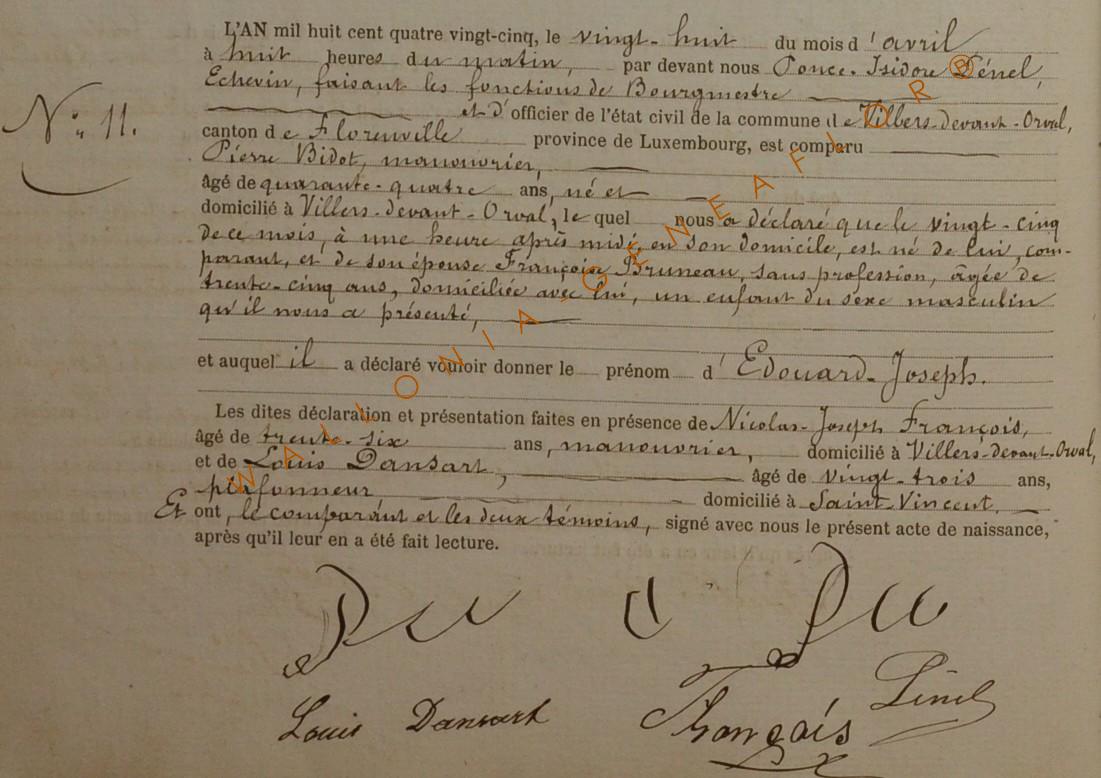 L'AN mil huit cent quatre vingt-cinq, le vingt-huit du mois d'avril
à huit heures du matin, par devant nous Ponce-Isidore Pénel,
Echevin, faisant les fonctions de Bourgmestre
N° 11.
et d'officier de l'état civil de la commune de Villers-devant-Orval,
canton de Florenville province de Luxembourg, est comparu
Pierre Bidot, manouvrier,
âgé de quarante-quatre ans, né et
domicilié à Villers-devant-Orval, le quel nous a déclaré que le vingt-cinq
de ce mois, à une heure après midi, en son domicile, est né de lui, com-
parant, et de son épouse Françoise Bruneau, sans profession, âgée de
trente-cinq ans, domiciliée avec lui, un enfant du sexe masculin
qu'il nous a présenté,
et auquel il a déclaré vouloir donner le prénom d'Edouard-Joseph.
Les dites déclaration et présentation faites en présence de Nicolas-Joseph François,
âgé de trente-six ans, manouvrier, domicilié à Villers-devant-Orval,
et de Louis Dansart, âgé de vingt-trois ans,
plafonneur, domicilié à Saint-Vincent,
Et ont, le comparant et les deux témoins, signé avec nous le présent acte de naissance,
après qu'il leur en a été fait lecture.
Louis Dansart François Pénel
WALLONIA - GENEAFLORB